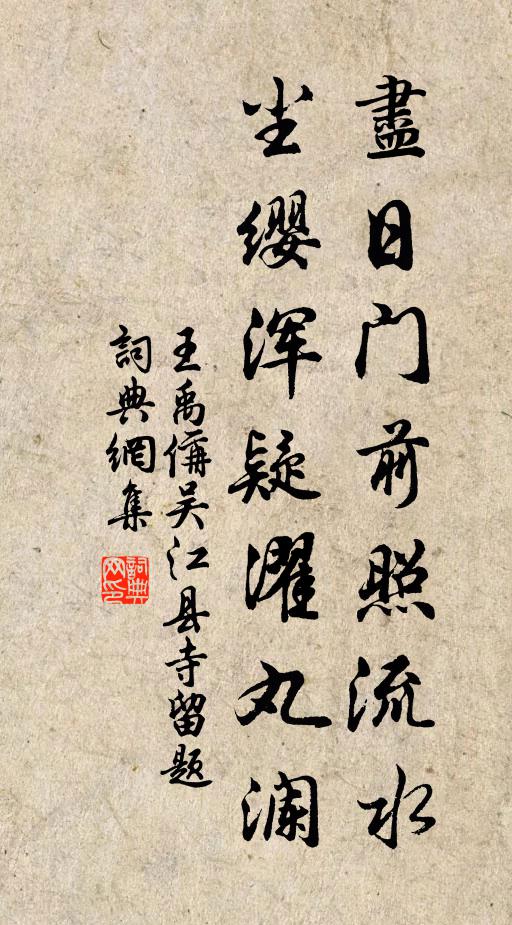 盡日门前照流水
尘缨浑疑濯丸澜
王禹偁吴江县寺留题
詞典網集
詞典网印